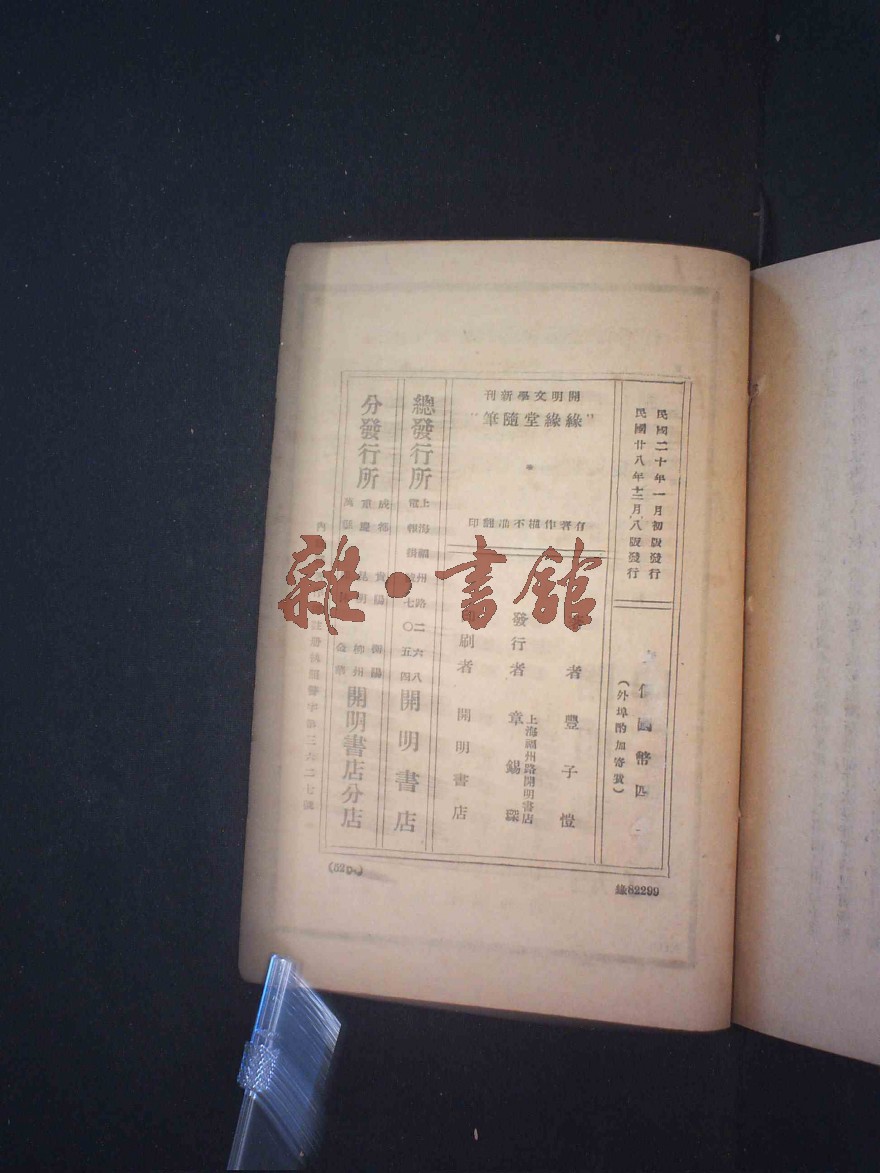 民國二十年一月初版發行
民國廿八年十二月八版發行
國幣四
(外埠酌加寄費)
開明文學新刊
"緣緣堂隨筆"
有著作權不准翻印
者 豐子愷
發行者 章錫琛
上海福州路開明書店
印刷者 開明書店
總發行所
上海福州路二六八
電報掛號七〇五四
開明書店
分發行所
成都
重慶
貴陽
衡陽
柳州
金華
開明書店分店
內
註冊 警字第三六二七號
緣82299
雜·書館